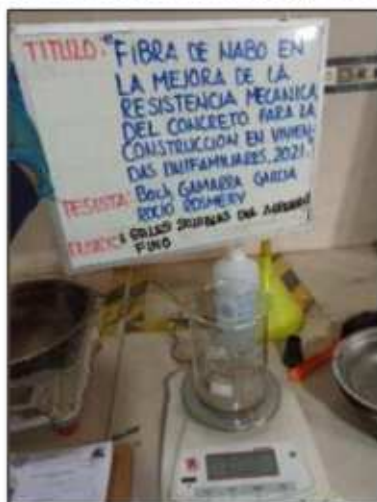 TITULO: "FIBRA DE NABO EN
LA MEJORA DE LA
RESISTENCIA MECANICA
DEL CONCRETO PARA LA
CONSTRUCCION EN VIVIEN-
DAS UNIFAMILIARES, 2021."
TESISTA: Bach GAMARRA GARCIA
ROCIO ROSMERY
ENSAYO: SALES SOLUBLES DEL AGREGADO
FINO